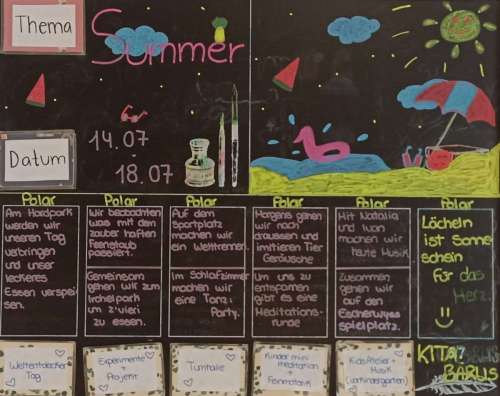 Thema
Summer
Datum
14.07
-
18.07
Polar
Polar
Polar
Polar
Polar
Polar
Am Hardpark
werden wir
unseren Tag
verbringen
und unser
leckeres
Essen verspei
sen.
Wir beobachten
was mit dem
zauberhaften
passiert.
Gemeinsam
gehen wir zum
Irchelpark
um z'vieri
zu essen.
Auf dem
Sportplatz
machen wir
ein Wettrennen.
Im Schlafzimmer
machen wir
eine Tanz-
Party.
Morgens gehen
wir nach
draussen und
imitieren Tier
Geräusche
Um uns zu
entspannen
gibt es eine
Meditations-
runde
Mit Natalia
und Ivan
machen wir
heute Musik
Zusammen
gehen wir
auf den
Escherwyss
spielplatz.
Lächeln
ist Sonne
schein
für das
Herz.
Weltentdecker
Tag
Experimente
+
Projekt
Turnhalle
Kinder mini
meditation
+
Feinmotorik
KidsAtelier +
Musik
(Vorkindergarten)
KITA
BÄRLIS